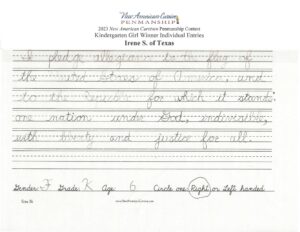 New American Cursive
PENMANSHIP
2023 New American Cursive Penmanship Contest
Kindergarten Girl Winner Individual Entries
Irene S. of Texas
I pledge allegiance to the flag of
the United States of America, and
to the Republic for which it stands
one nation under God, indivisible,
with liberty and justice for all.
Gender: F Grade: K Age: 6 Circle one: Right or Left handed